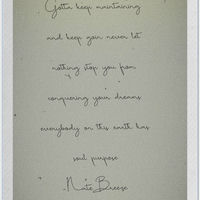 Gotta keep maintaining
and keep goin never let
nothing stop you from
conquering your dreams
everybody on this earth has
soul purpose
-Nate Breeze